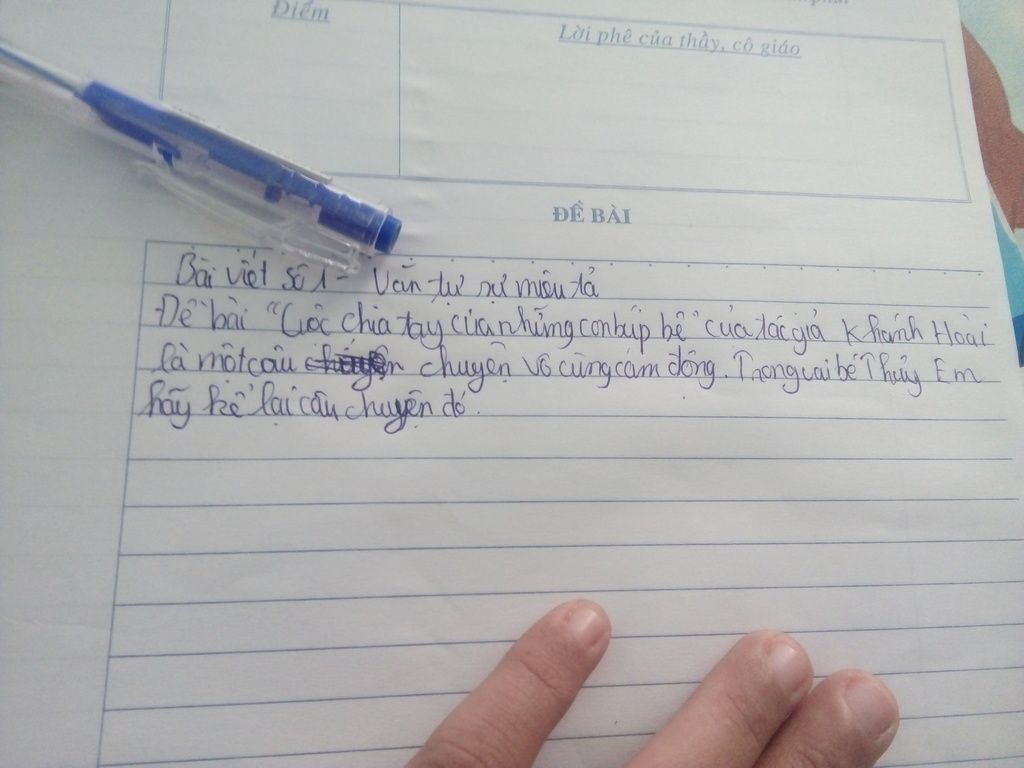 Điểm
Lời phê của thầy, cô giáo
ĐỀ BÀI
Bài viết số 1 - Văn tự sự miêu tả
Đề bài "Cuộc chia tay của những con búp bê" của tác giả Khánh Hoài
là một câu chuyện vô cùng cảm động. Trong vai bé Thủy Em
hãy kể lại câu chuyện đó.